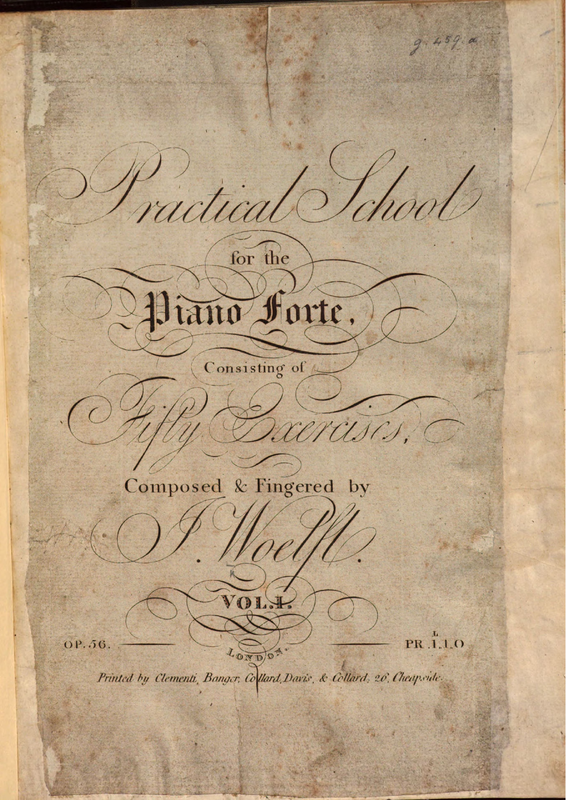 g. 459. a
Practical School
for the
Piano Forte,
Consisting of
Fifty Exercises,
Composed & Fingered by
J. Woelfl.
VOL.I.
OP. 56. PR. L 1.1.0
LONDON.
Printed by Clementi, Banger, Collard, Davis, & Collard, 26, Cheapside.